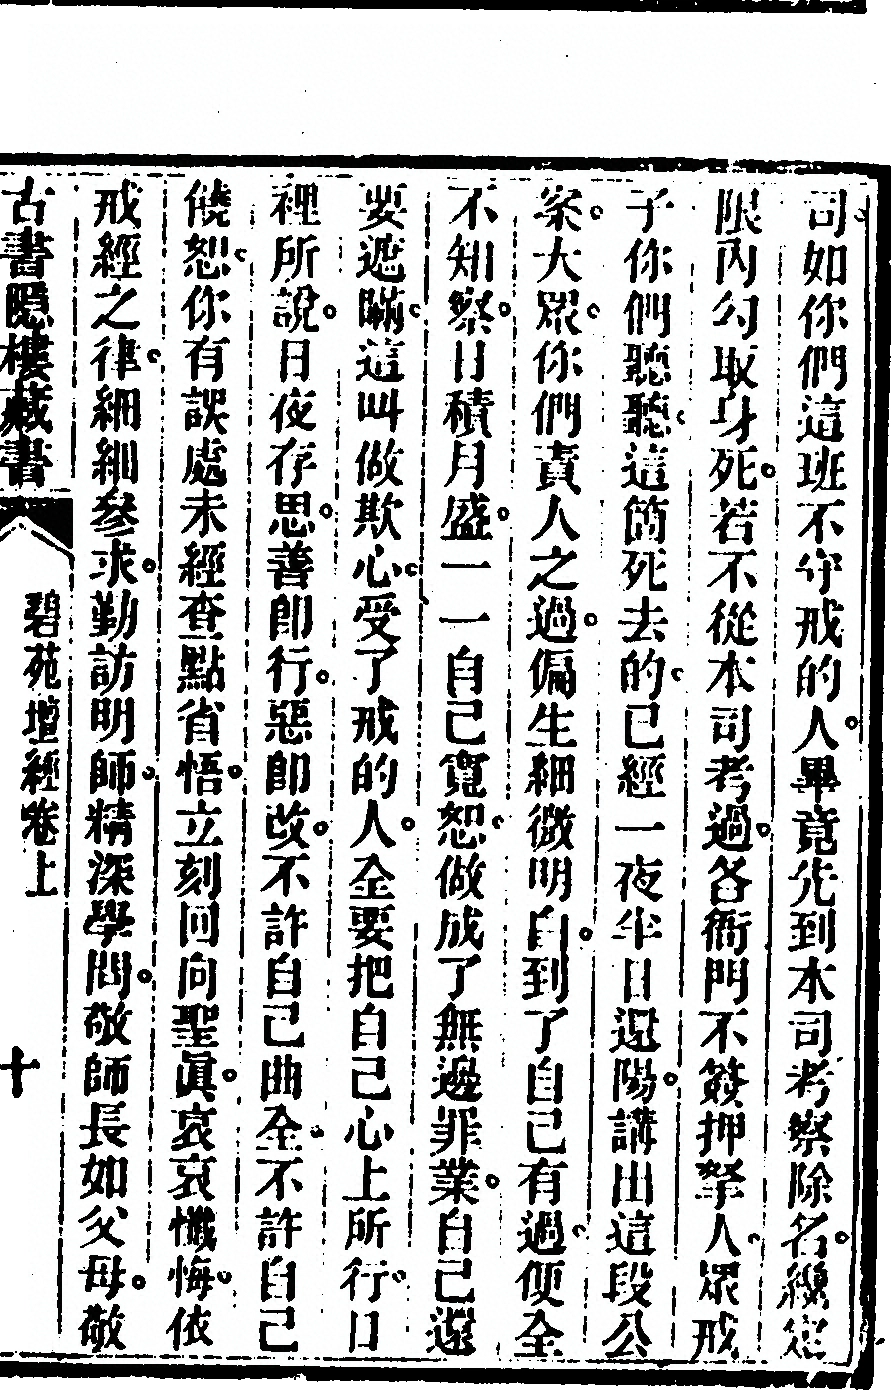 司。如你們這班不守戒的人。畢竟先到本司考察除名。纔定
限內勾取身死。若不從本司考過。各衙門不簽押拏人。眾戒
子你們聽聽。這箇死去的。已經一夜半日還陽。講出這段公
案。大眾。你們責人之過。偏生細微明白。到了自己有過。便全
不知察。日積月盛。一一自己寬恕。做成了無邊罪業。自己還
要遮瞞。這叫做欺心。受了戒的人。全要把自己心上所行。口
裡所說。日夜存思。善卽行。惡卽改。不許自己曲全。不許自己
饒恕。你有誤處未經查點省悟。立刻回向聖眞。哀哀懺悔。依
戒經之律。細細參求。勤訪明師。精深學問。敬師長如父母。敬
古書隱樓藏書
碧苑壇經卷上
十